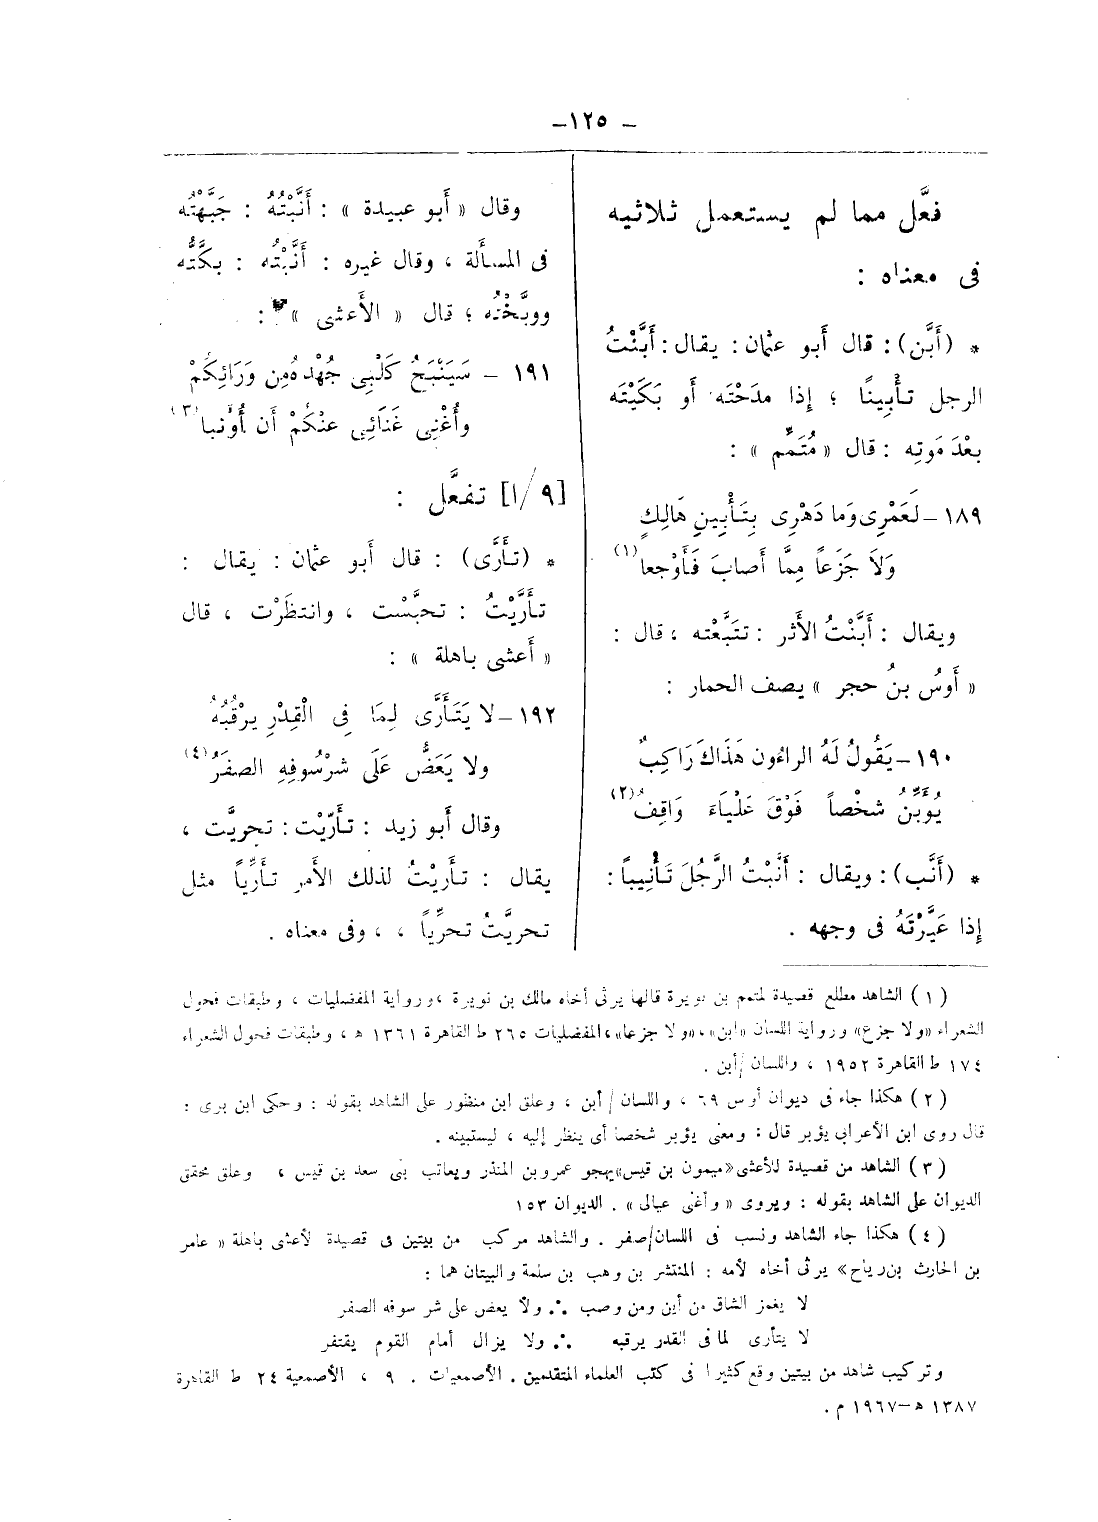 – ١٢٥ –
فعَّل مما لم يستعمل ثلاثيه
فى معناه :
* (أَبَّن) : قال أَبو عثمان : يقال : أَبَّنْتُ
الرجل تأْبينًا ؛ إذا مدَحْتَه أو بَكَيْتَه
بعْدَ مَوتِه : قال « مُتَمِّم » :
١٨٩ – لَعَمْرِى وَما دَهْرِى بِتَأْبِينِ هَالِكٍ
وَلاَ جَزَعاً مِمَّا أَصابَ فَأَوْجعا(١)
ويقال : أَبَّنْتُ الأَثر : تتَبَّعْته ، قال :
« أَوسُ بنُ حجر » يصف الحمار :
١٩٠ – يَقُولُ لَهُ الراءُون هَذَاكَ رَاكِبٌ
يُؤَبِّنُ شخْصاً فَوْقَ عَلْيَاءَ وَاقِفُ(٢)
* (أَنَّب) : ويقال : أَنَّبْتُ الرَّجُلَ تَأْنِيباً :
إذا عَيَّرْتَهُ فى وجهه .
وقال « أَبو عبيدة » : أَنَّبْتُهُ : جَبَّهْتُه
فى المسأَلة ، وقال غيره : أَنَّبْتُه : بكَّتُّه
ووبَّخْتُه ؛ قال « الأَعشى » :
١٩١ – سَيَنْبَحُ كَلْبِى جُهْدهُ مِن وَرَائِكُمْ
وأُغْنِى غَنَائِى عنكُمْ أَن أُوَنبا(٣)
[٩/ا] تفعَّل :
* (تأَرَّى) : قال أَبو عثمان : يقال :
تأَرَّيْتُ : تحبَّست ، وانتظَرْت ، قال
« أَعشى باهلة » :
١٩٢ – لا يَتَأَرَّى لِمَا فِى الْقِدْرِ يرْقُبُهُ
ولا يَعَضُّ عَلَى شرْسُوفِهِ الصفَرُ(٤)
وقال أَبو زيد : تأَرَّيْت : تحريَّت ،
يقال : تأَريْتُ لذلك الأَمر تأَرِّياً مثل
تحريَّتُ تحرِّياً ، ، وفى معناه .
(١) الشاهد مطلع قصيدة لمتمم بن نويرة قالها يرثى أخاه مالك بن نويرة ، ورواية المفضليات ، وطبقات فحول
الشعراء «ولا جزع» ورواية اللسان «ابن» ، «ولا جزعا» ، المفضليات ٢٦٥ ط القاهرة ١٣٦١ ه ، وطبقات فحول الشعراء
١٧٤ ط القاهرة ١٩٥٢ ، واللسان /أبن .
(٢) هكذا جاء فى ديوان أوس ٦٩ ، واللسان / أبن ، وعلق ابن منظور على الشاهد بقوله : وحكى ابن برى :
قال روى ابن الأعرابى يؤبر قال : ومعنى يؤبر شخصا أى ينظر إليه ، ليستبينه .
(٣) الشاهد من قصيدة للأعشى «ميمون بن قيس» يهجو عمرو بن المنذر ويعاتب بنى سعد بن قيس ، وعلق محقق
الديوان على الشاهد بقوله : ويروى « وأغنى عيالى » . الديوان ١٥٣
(٤) هكذا جاء الشاهد ونسب فى اللسان/صفر . والشاهد مركب من بيتين فى قصيدة لأعشى باهلة « عامر
بن الحارث بن رياح» يرثى أخاه لأمه : المنتشر بن وهب بن سلمة والبيتان هما :
لا يغمز الشاق من أين ومن وصب ∴ ولا يعض على شر سوفه الصفر
لا يتأرى لما فى القدر يرقبه ∴ ولا يزال أمام القوم يقتفر
وتركيب شاهد من بيتين وقع كثيرا فى كتب العلماء المتقدمين . الأصمعيات . ٩ ، الأصمعية ٢٤ ط القاهرة
١٣٨٧ ه – ١٩٦٧ م .